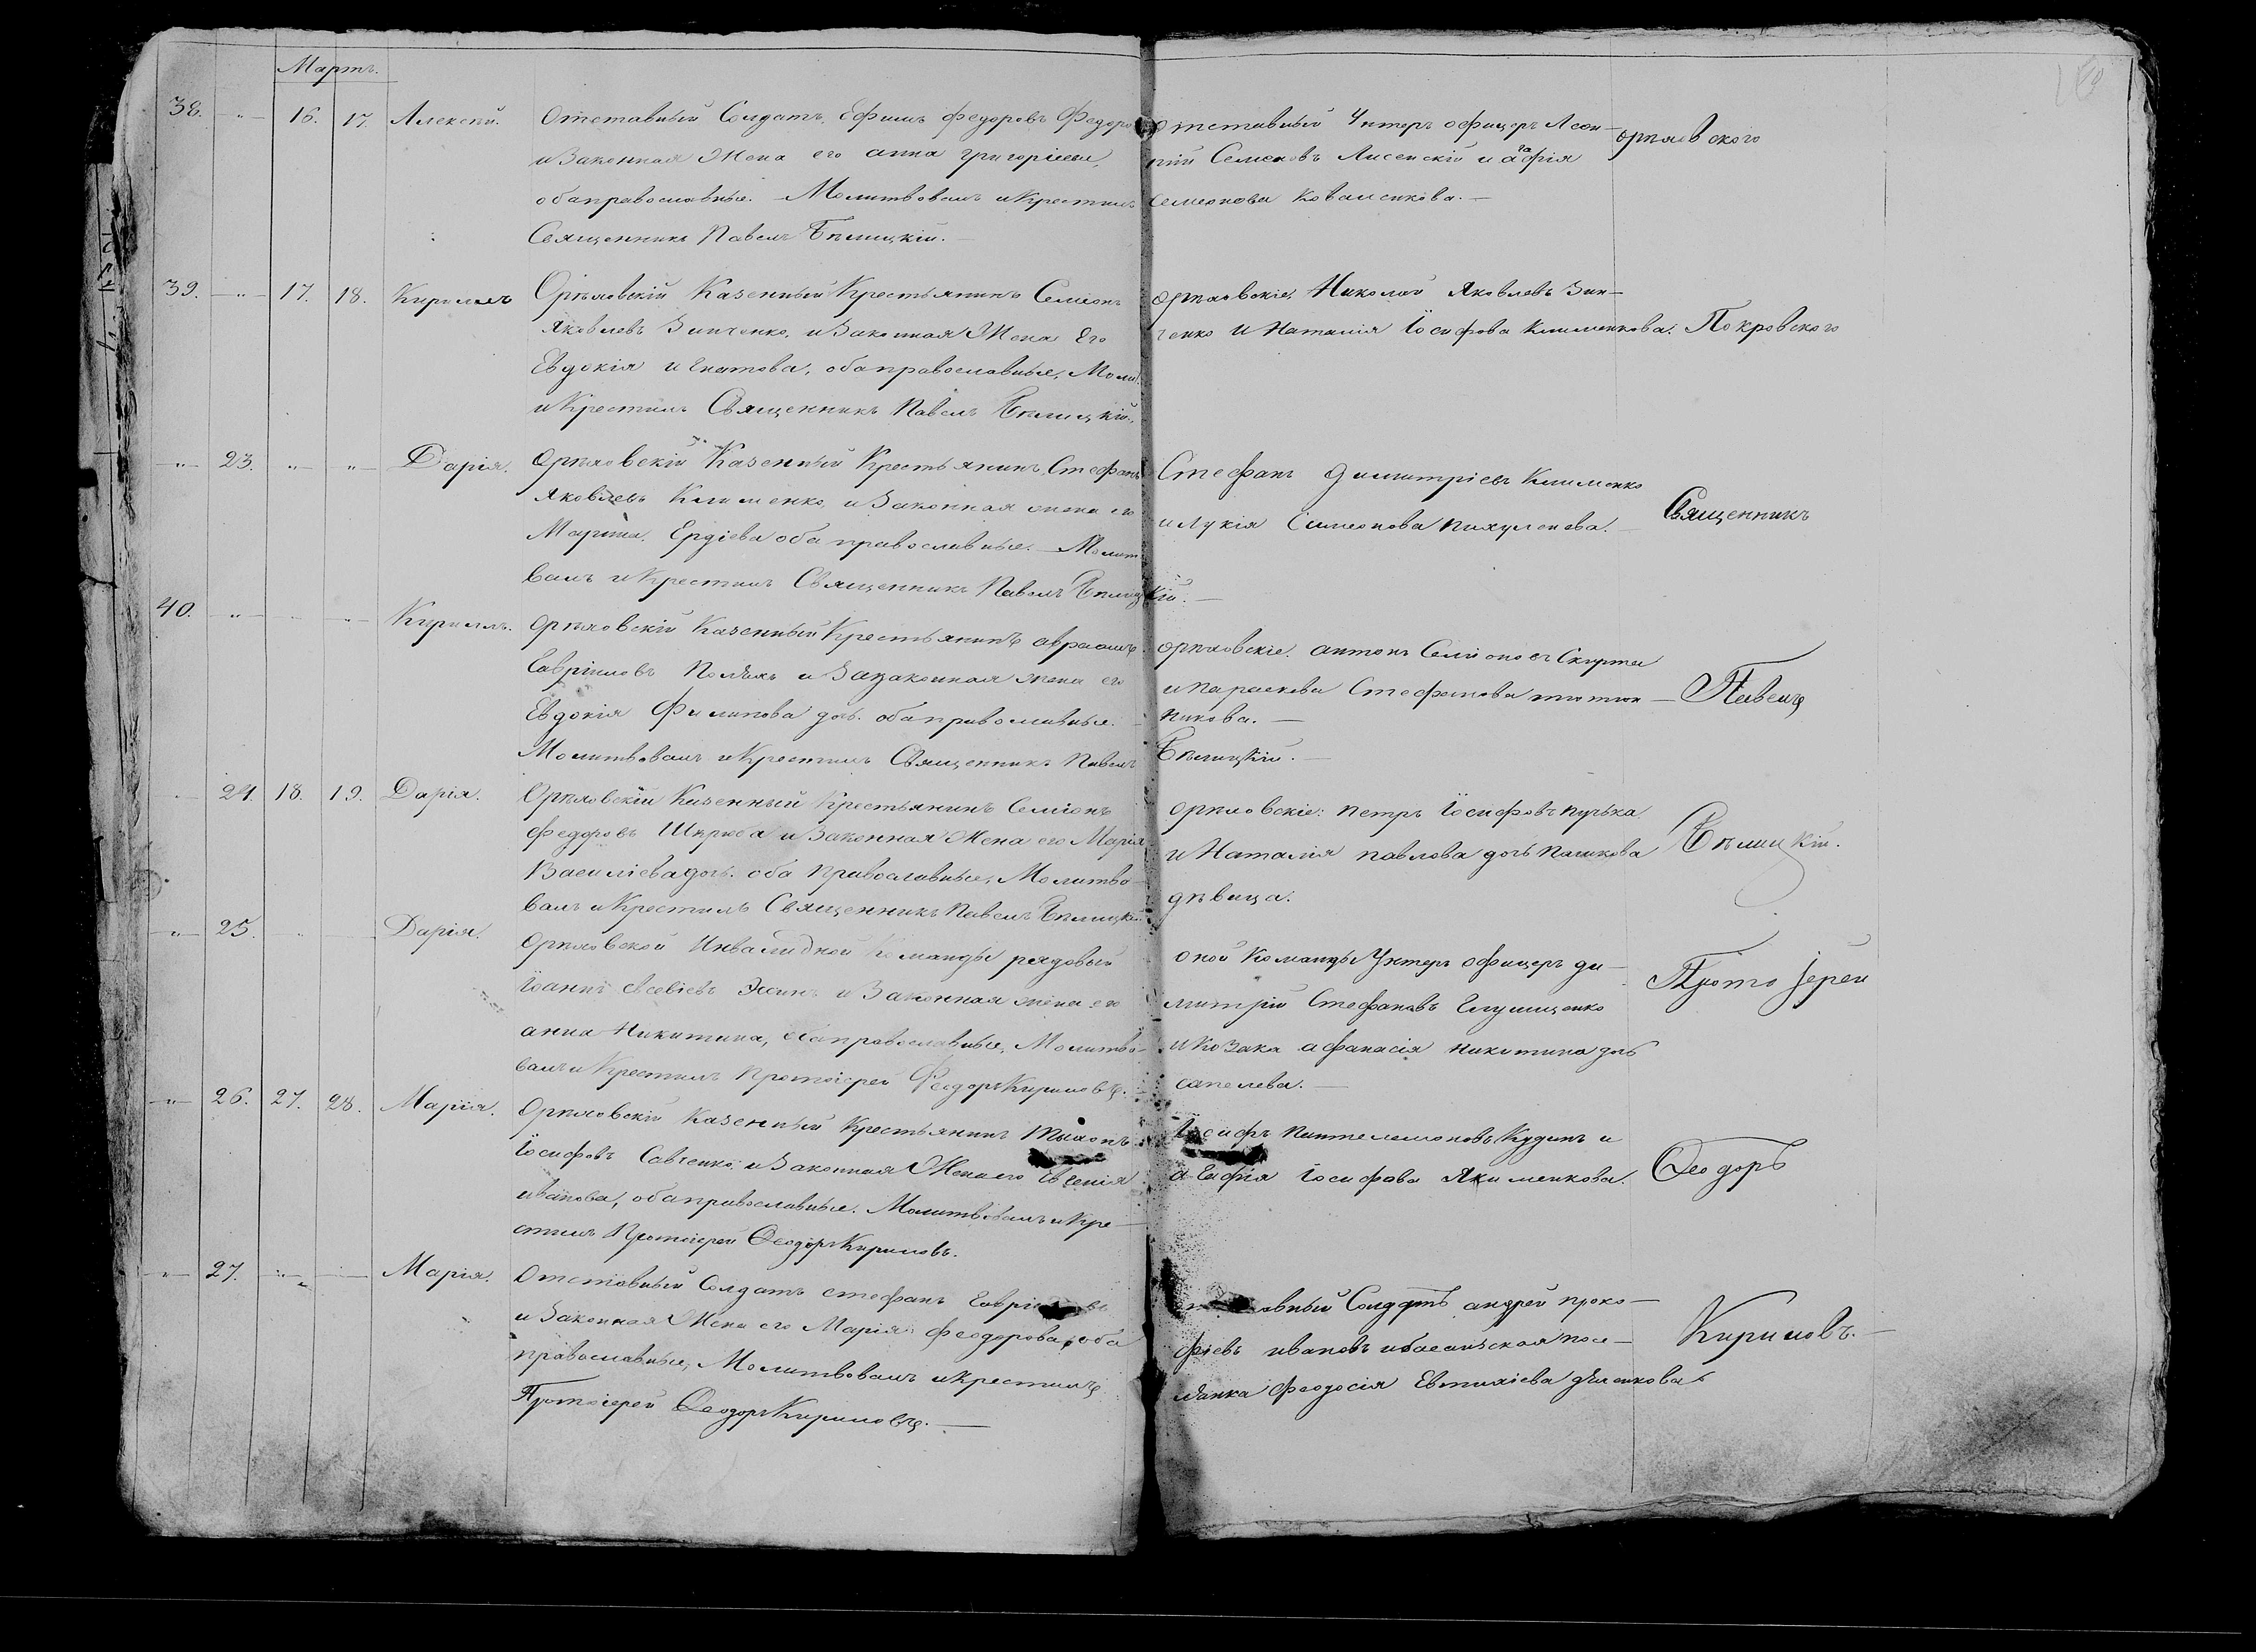 Мартъ.
38. 16. 17. Алексѣй. Отставный Солдатъ, Ефимъ Федоровъ Федоро
и Законная Жена его анна григоріева,
оба православные. – Молитвовалъ и Крестилъ
Священникъ Павелъ Бѣлицкій. –
Отставный Унтеръ офицеръ Леон–
тій Семеновъ Лисенскій и агафія
Семеонова Коваленкова. –
орѣховского
39. 17. 18. Кириллъ Орѣховскій Казенный Крестьянинъ Семіонъ
Яковлевъ Зинченко, и Законная Жена Его
Евдокія игнатова, оба православные, Моли
и Крестилъ Священникъ Павелъ Бѣлицкій.
орѣховскіе, Николай Яковлевъ Зин–
ченко и Наталія Іосифова Клименкова.
Покровского
23. Дарія. Орѣховскій Казенный Крестьянинъ Стефанъ
Яковлевъ Клименко, и Законная жена его
Марѳа. оба православные. – Молит
валъ и Крестилъ Священникъ Павелъ Бѣлицкій. –
Стефанъ Димитріевъ Клименко
и лукія Симеонова
Священникъ
40. Кириллъ. Орѣховскій Казенный Крестьянинъ авраамъ
Гавріиловъ и Зазаконная жена его
Евдокія Филипова дочь. оба православные. –
Молитвовалъ и Крестилъ Священникъ Павелъ Бѣлицкій. –
орѣховскіе. антонъ Семіоновъ
и параскева Стефанова тютюн–
никова. –
Павелъ
24. 18. 19. Дарія. Орѣховскій Казенный Крестьянинъ Семіонъ
Федоровъ и Законная Жена его Марія
Василіева дочь. оба православные, Молитво–
валъ и Крестилъ Священникъ Павелъ Бѣлицкій
орѣховскіе: петръ Іосифовъ пучка
и Наталія павлова дочь
дѣвица.
Бѣлицкій.
25. Дарія. Орѣховской Инвалидной Команды рядовый
Іоаннъ и Законная жена его
анна Никитина, оба православные, Молитво–
валъ и Крестилъ протоіерей Феодоръ Кириловъ. –
оной Команды Унтеръ офицеръ ди–
митрій Стефановъ Глущенко
и Козака афанасія никитина дочь
сапелева. –
Протоіерей
26. 27. 28. Марія. Орѣховскій Казенный Крестьянинъ Тихонъ
Іосифовъ Савченко, и Законная Жена его Евгенія
иванова, оба православные. Молитвовалъ и Кре–
стилъ Протоіерей Ѳеодоръ Кириловъ.
Іосифъ пантелемоновъ Кудинъ и
агафія Іосифова Якименкова.
Ѳеодоръ
27. Марія. Отставный Солдатъ стефанъ
и Законная Жена его Марія Феодорова, оба
православные, Молитвовалъ и крестилъ
Протоіерей Ѳеодоръ Кириловъ. –
Солдатъ андрей проко–
фіевъ ивановъ посе–
лянка Феодосія Евтихіева
Кириловъ. –